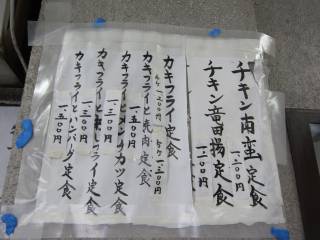 チキン南蛮定食
一二〇〇円
チキン竜田揚定食
一二〇〇円
カキフライ定食
カキフライと焼肉定食
一五〇〇円
カキフライとメンチカツ定食
一三〇〇円
カキフライと フライ定食
一三〇〇円
カキフライとハンバーグ定食
一五〇〇円